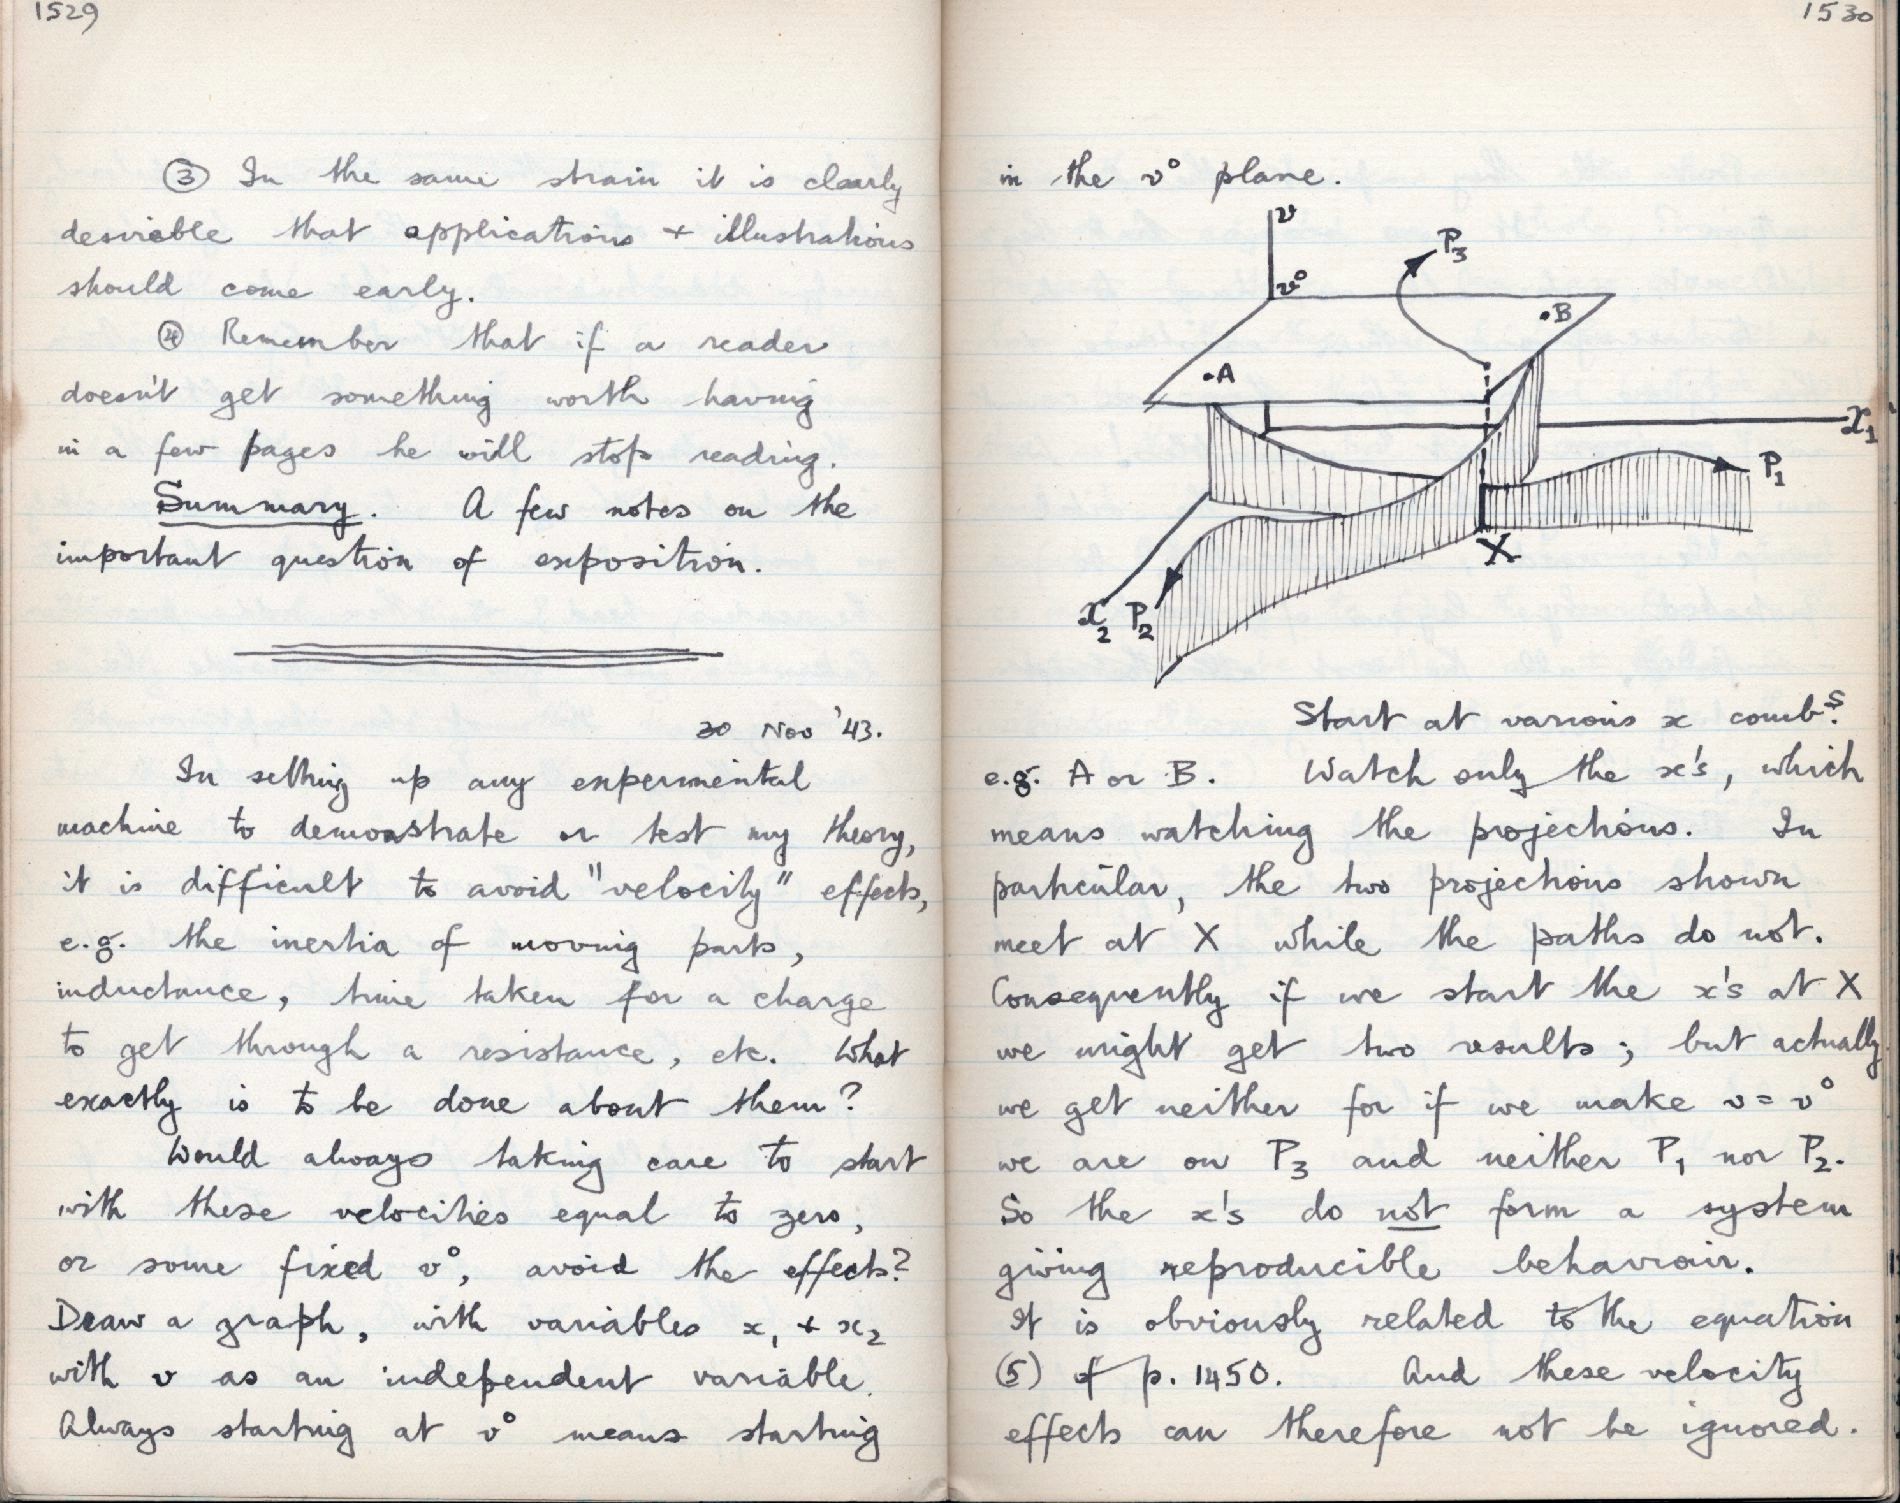 1529
③ In the same strain it is clearly
desirable that applications + illustrations
should come early.
④ Remember that if a reader
doesn't get something worth having
in a few pages he will stop reading.
Summary. A few notes on the
important question of exposition.
30 Nov '43.
In setting up any experimental
machine to demonstrate or test my theory,
it is difficult to avoid "velocity" effects,
e.g. the inertia of moving parts,
inductance, time taken for a charge
to get through a resistance, etc. What
exactly is to be done about them?
Would always taking care to start
with these velocities equal to zero,
or some fixed v°, avoid the effects?
Draw a graph, with variables x₁ + x₂
with v as an independent variable.
Always starting at v° means starting
1530
in the v° plane.
v
P₃
v°
.B
.A
x₁
P₁
X
x₂ P₂
Start at various x combˢ.
e.g. A or B. Watch only the x's, which
means watching the projections. In
particular, the two projections shown
meet at X while the paths do not.
Consequently if we start the x's at X
we might get two results; but actually
we get neither for if we make v = v°
we are on P₃ and neither P₁ nor P₂.
So the x's do not form a system
giving reproducible behaviour.
It is obviously related to the equation
(5) of p. 1450. And these velocity
effects can therefore not be ignored.